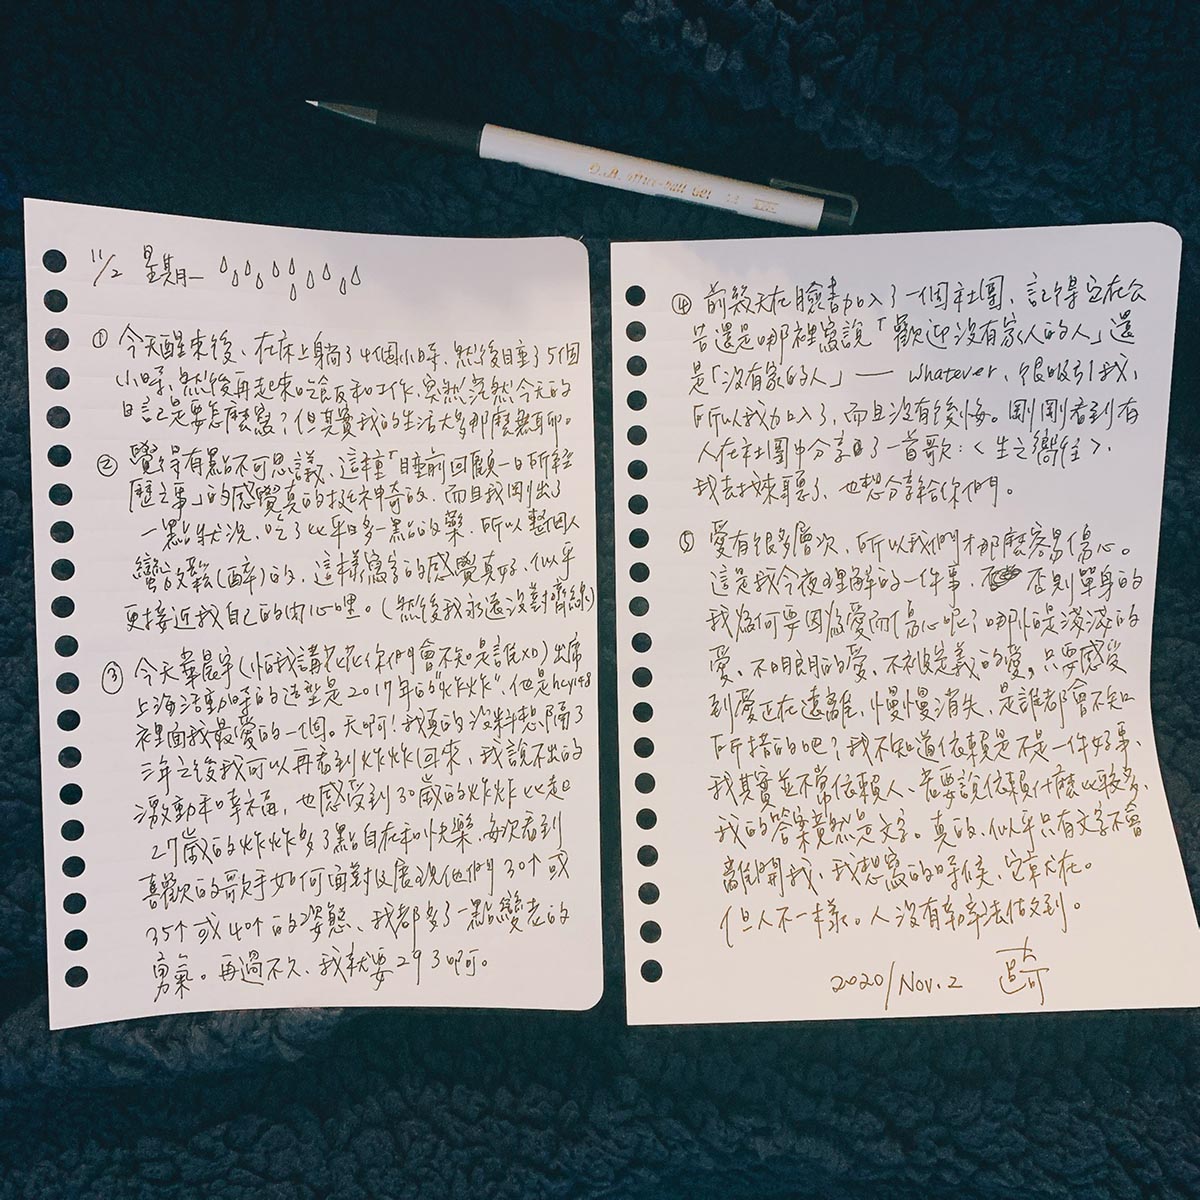 11/2 星期一
① 今天醒來後、在床上躺了4個小時、然後睡了5個
小時、然後再起來吃飯和工作、突然茫然今天的
日記是要怎麼寫?但其實我的生活大多那麼無聊。
② 覺得有點不可思議、這種「睡前回顧一日所經
歷之事」的感覺真的挺神奇的、而且我剛出了
一點狀況、吃了比平日多一點的藥、所以整個人
蠻放鬆(醉)的、這樣寫字的感覺真好、似乎
更接近我自己的內心哩。(然後我永遠沒對齊線)
③ 今天華晨宇(怕我講花花你們會不知是誰XD)出席
上海活動時的造型是2017年的"炸炸"、他是hcy148
裡面我最愛的一個。天啊!我真的沒料想隔了
三年之後我可以再看到炸炸回來、我說不出的
激動和幸福、也感受到30歲的炸炸比起
27歲的炸炸多了點自在和快樂、每次看到
喜歡的歌手如何面對及展現他們30个或
35个或40个的姿態、我都多了一點變老的
勇氣。再過不久、我就要29了啊。
④ 前幾天在臉書加入了一個社團、記得它在公
告還是哪裡寫說「歡迎沒有家人的人」還
是「沒有家的人」——whatever、很吸引我、
所以我加入了、而且沒有後悔。剛剛看到有
人在社團中分享了一首歌:〈生之嚮往〉、
我去找來聽了、也想分享給你們。
⑤ 愛有很多層次、所以我們才那麼容易傷心。
這是我今夜理解的一件事、否則單身的
我為何要因為愛而傷心呢?哪怕是淺淺的
愛、不明朗的愛、不被定義的愛,只要感受
到愛正在遠離、慢慢消失、是誰都會不知
所措的吧?我不知道依賴是不是一件好事、
我其實並不常依賴人、若要說依賴什麼比較多、
我的答案竟然是文字。真的、似乎只有文字不會
離開我、我想寫的時候、它就在。
但人不一樣。人沒有辦法做到。
2020/Nov.2